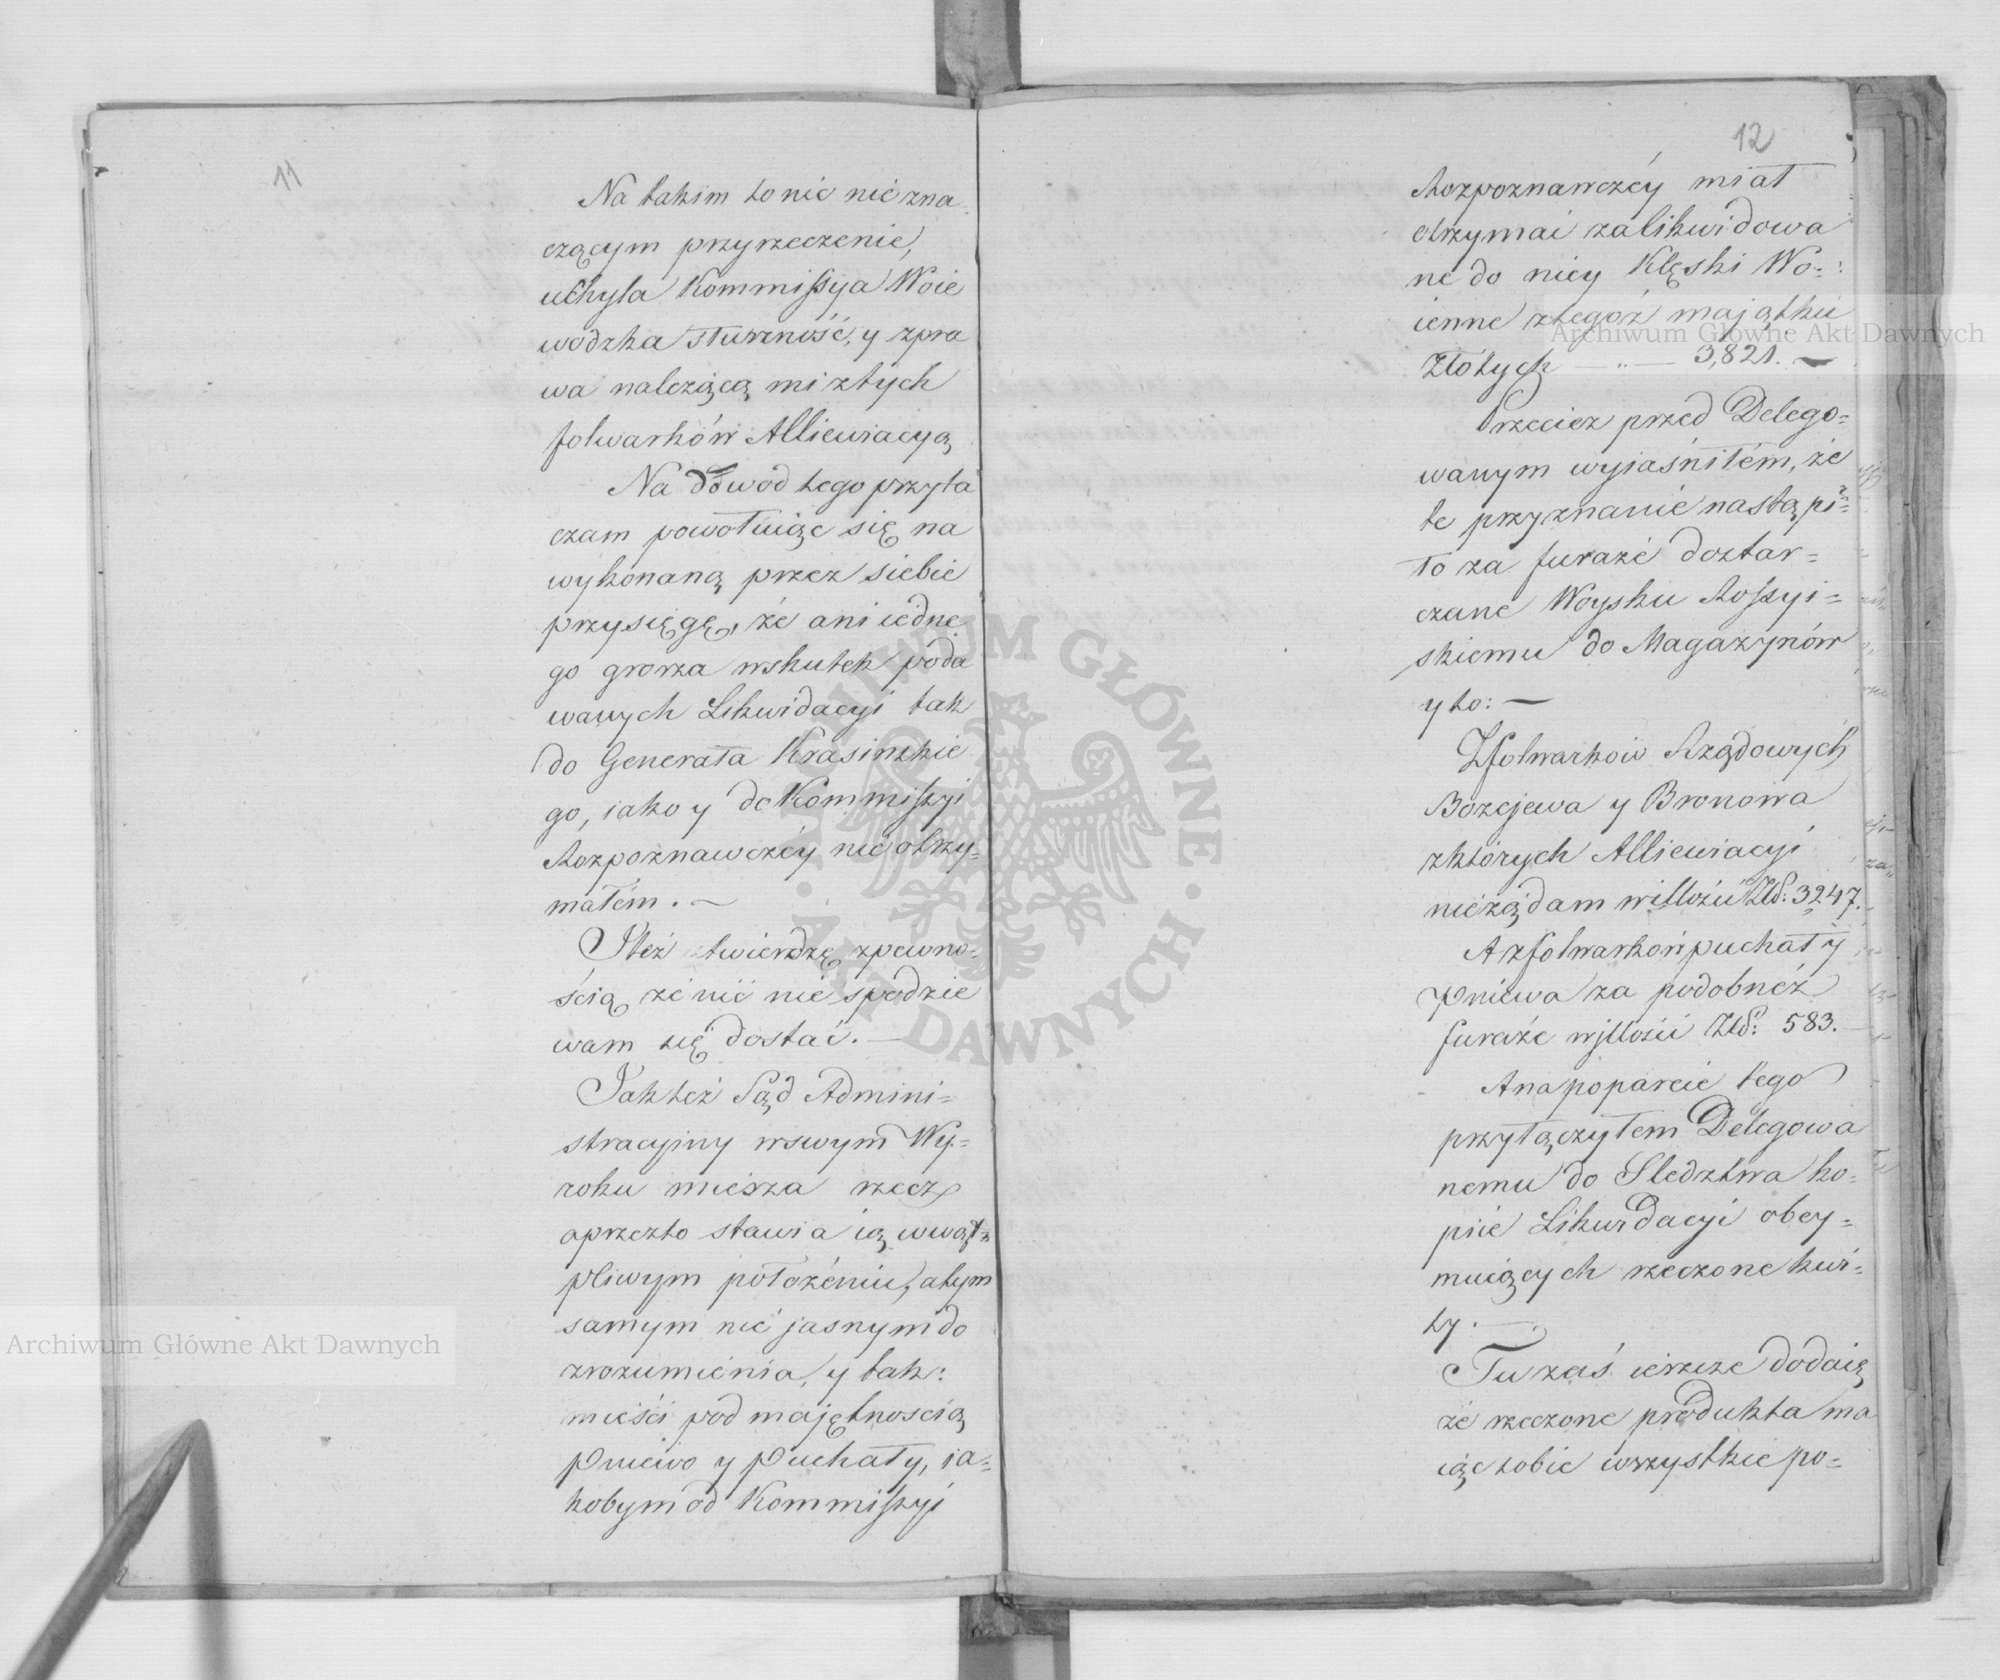 11
Na takim to nic nie zna
czącym przyrzeczenie,
uchyla Kommissya Woie
wodzka słuszność, y zpra
wa należącą mi ztych
folwarków Alliewiacyą
Na dowód tego przyta
czam powołuiąc się na
wykonaną przez siebie
przysięgę, że ani iedne
go grosza wskutek poda
wanych Likwidacyi tak
do Generała Krasinskie
go, iako y do Kommissyi
Rozpoznawczéy nie otrzy=
małem. —
Też twierdzę zpewno=
ścią że nic nie spodzie
wam się dostać. —
Jak też Sąd Admini=
stracyiny wswym Wy=
roku miesza rzecz
aprzezto stawia ią wwąt=
pliwym położeniu, atym
samym nie jasnym do
zrozumienia, y tak:
mieści pod majętnoscią
Pniewo y Puchały, ia=
kobym od Kommissyi
12
Rozpoznawczéy miał
otrzymać zalikwidowa
ne do niey Klęski Wo=
ienne ztegoż majątku
Złotych — „ — 3,821. —
Przecież przed Delego=
wanym wyiaśniłem, że
te przyznanie nastąpi=
ło za furaże dostar=
czane Woysku Rossyi=
skiemu do Magazynów
y to: —
Zfolwarków Rządowych
Bożejewa y Bronowa
zktórych Alliewiacyi
nieżądam willości Złp: 3247.
A zfolwarków puchały
Pniewa za podobnéż
furaże wjlłości Złp: 583. —
Ana poparcie tego
przyłączyłem Delegowa
nemu do Sledztwa ko=
pie Likwidacyi obey=
muiących rzeczone kwi=
ty. —
Tu zaś ieszcze dodaię
że rzeczone produkta ma
iąc sobie wszystkie po=
Archiwum Główne Akt Dawnych
Archiwum Główne Akt Dawnych
ARCHIWUM GŁÓWNE · AKT DAWNYCH ·